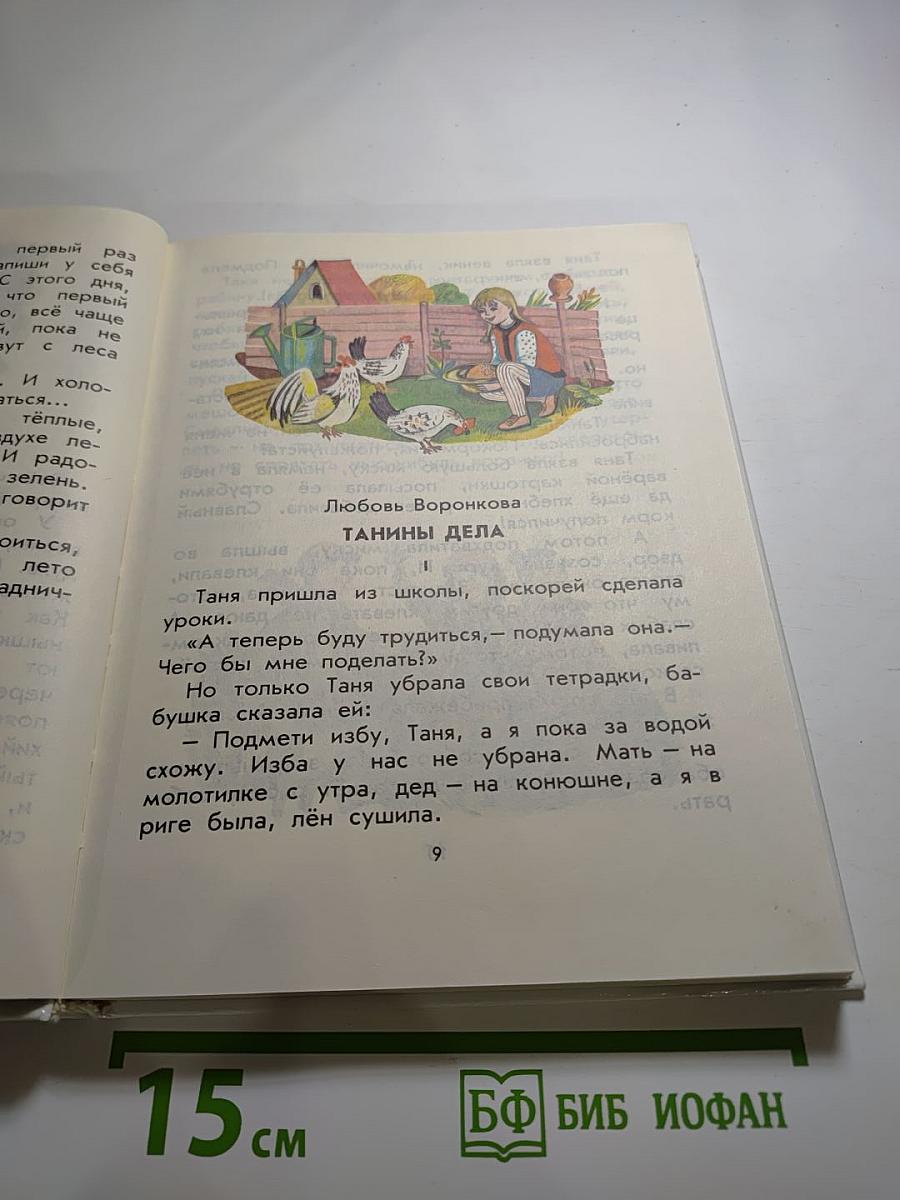 первый раз
апиши у себя
С этого дня,
что первый
о, всё чаще
й, пока не
вут с леса
. И холо-
аться...
тёплые,
здухе ле-
И радо-
зелень.
говорит
оиться,
лето
аднич-
Любовь Воронкова
ТАНИНЫ ДЕЛА
I
Таня пришла из школы, поскорей сделала
уроки.
«А теперь буду трудиться,— подумала она.—
Чего бы мне поделать?»
Но только Таня убрала свои тетрадки, ба-
бушка сказала ей:
— Подмети избу, Таня, а я пока за водой
схожу. Изба у нас не убрана. Мать — на
молотилке с утра, дед — на конюшне, а я в
риге была, лён сушила.
9
15 см
БФ БИБ ИОФАН